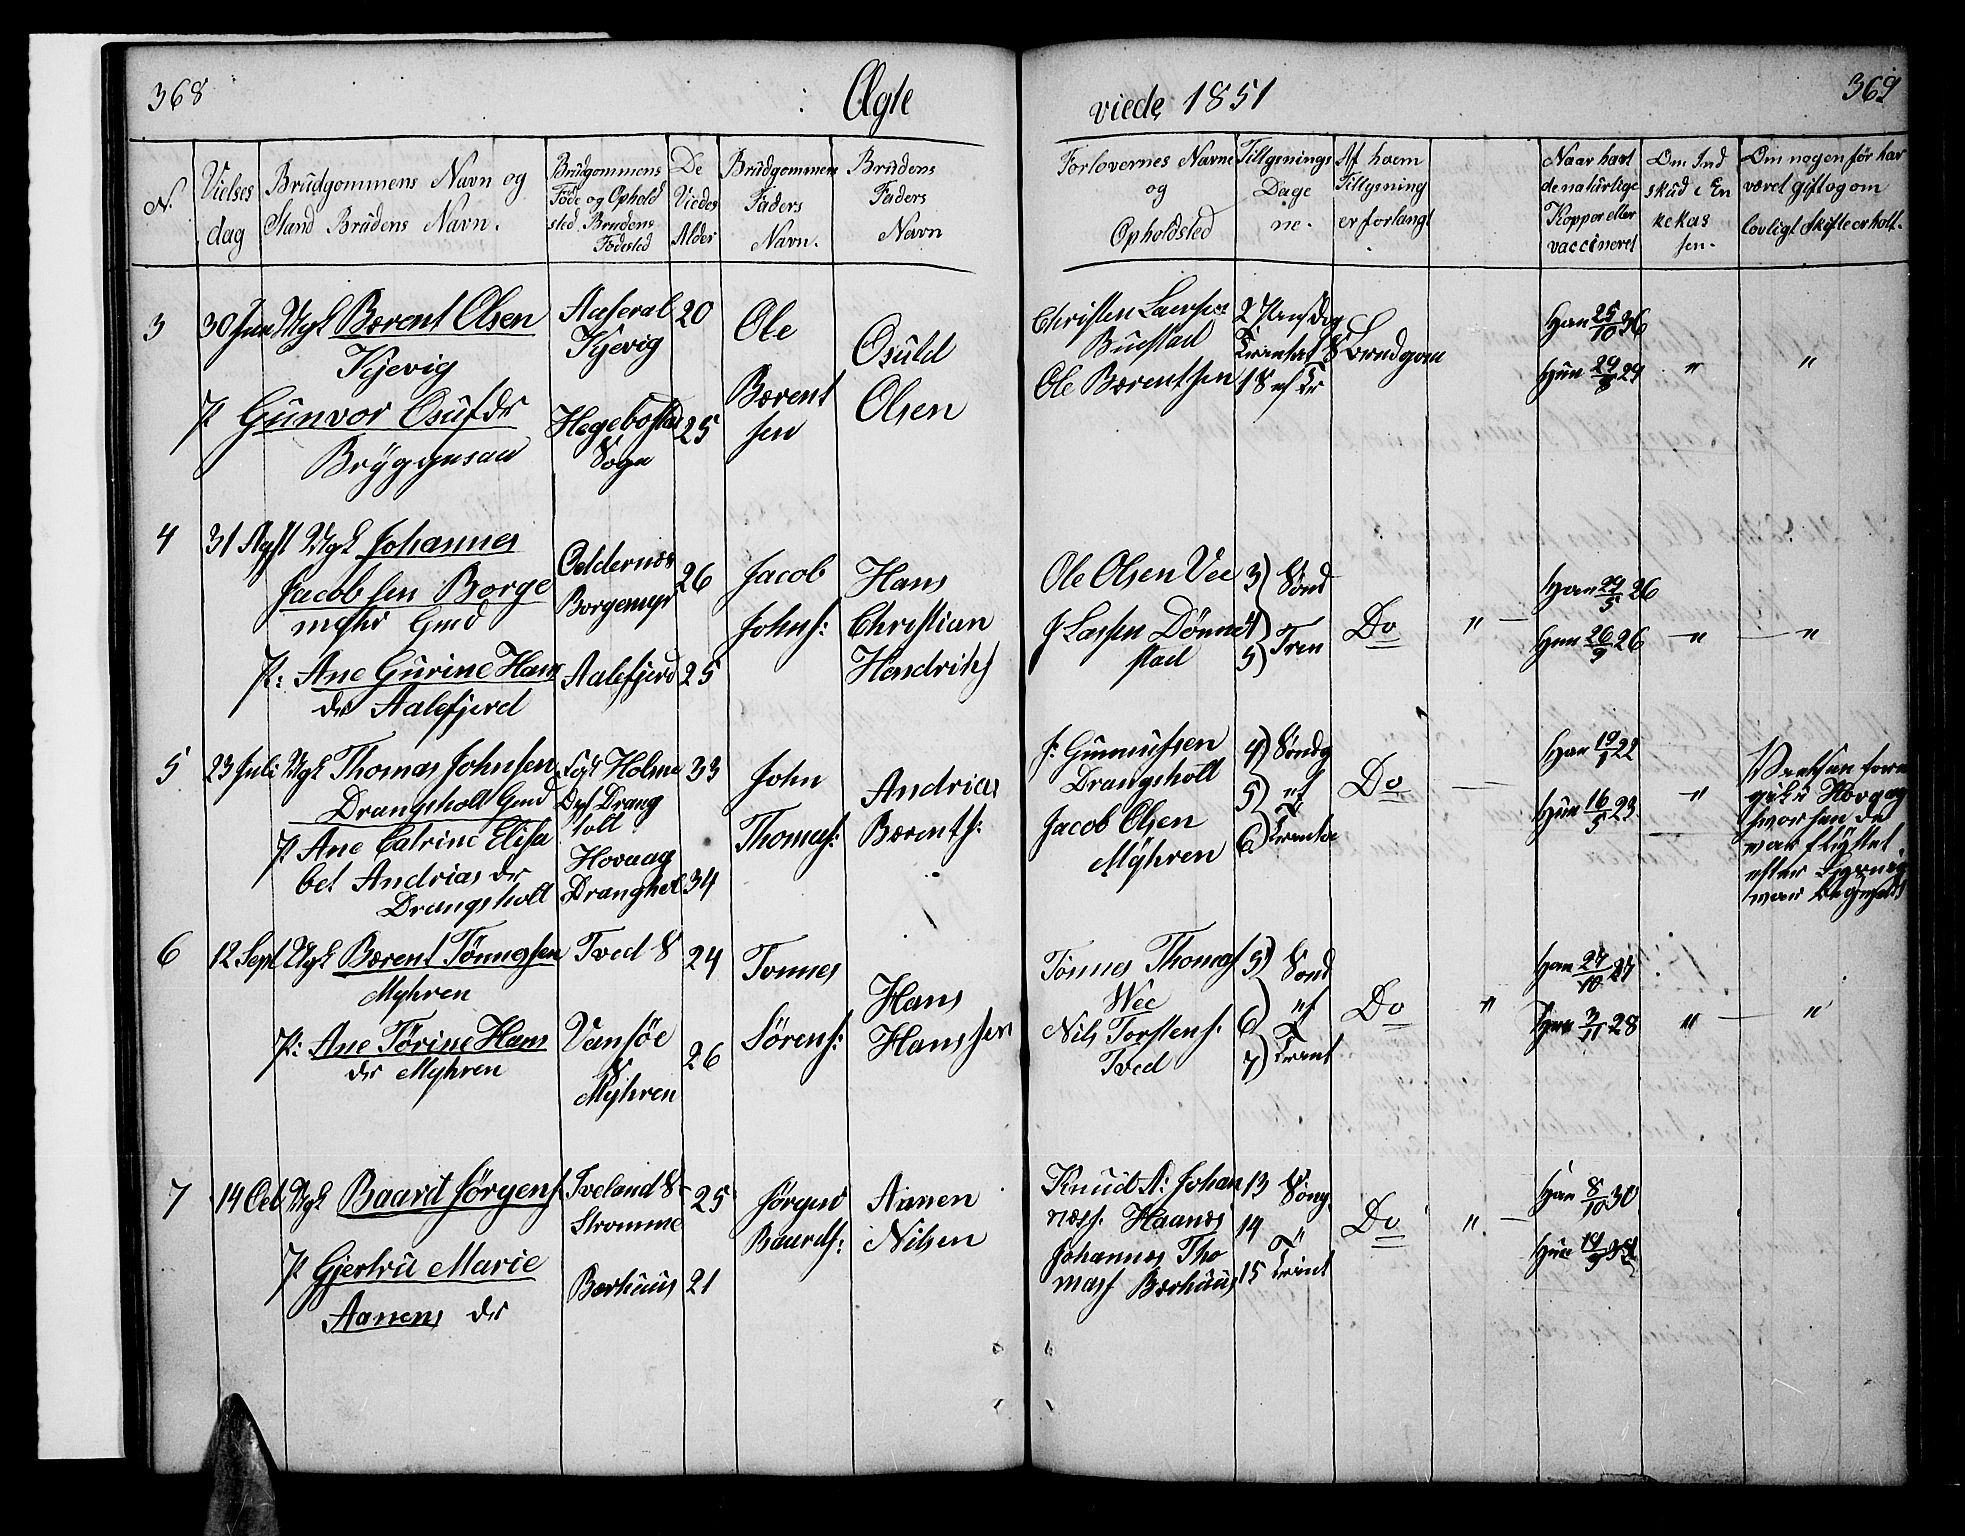 368
Ægte
viede 1851
369
N.
Vielses
dag
Brudgommens Navn og
Stand Brudens Navn.
Brudgommens
Føde og Ophold
sted. Brudens
Fødested
De
Viedes
Alder
Brudgommens
Faders
Navn.
Brudens
Faders
Navn
Forlovernes Navne
og
Opholdsted
Tillysnings
Dage
ne.
Af hvem
Tillysning
er forlangt
Naar havt
de naturlige
Kopper eller
vaccineret
Om Ind
skud i En
kekas
sen.
Om nogen før har
været gift og om
lovligt Skifte er holt.
3
30 Juni
Ugk Bærent Olsen
Kjevig
P Gunvor Osufdr
Bryggesau
Aaseral
Kjevig
Hegebostad
Sogn
20
25
Ole
Bærent
sen
Osuld
Olsen
Christen Laersen
Buestad
Ole Bærentsen
Brudgom
Han 25/10 36
Hun 29/8 29
"
"
4
31 Agst
Ugk Johannes
Jacobsen Borge
mester Gmd
P: Ane Gurine Hans
dr Aalefjerd
Oeldernes
Borgemyr
Aalefjerd
26
25
Jacob
Johns:
Hans
Christian
Hendrichs
Ole Olsen Vee
J Larsen Dønne
stad
3) Sønd
4)
5) Tren
Do
"
Han 29/5 26
Hun 26/9 26
"
"
5
23 Juli
Ugk Thomas Johnsen
Drangsholt Gmd
P Ane Catrine Elisa
bet Andrias dr
Drangsholt
Holme
Drang
holt
Hovaag
Dranghol
33
34
John
Thomas:
Andrias
Bærents:
J: Gunnufsen
Drangsholt
Jacob Olsen
Myhren
4) Søndg
5) ef
6) Trent
Do
Han 19/1 22
Hun 16/5 23
"
Vielsen fore
gik i Hovaag
hvor hun da
var flyttet
efter Lysning
var begjært
6
12 Sept
Ugk Bærent Tønnesen
Myhren
P: Ane Tørine Hans
dr Myhren
Tved S
Vansøe
S
Myhren
24
26
Tonnes
Sørens:
Hans
Hanssen
Tønnes Thomas
Wee
Nils Torstens:
Tved
5) Sond
6) ef
7) Trent
Do
"
Han 27/10 27
Hun 3/11 28
"
"
7
14 Oct
Ugk Baard Jørgens
P Gjertru Marie
Aanens dr
Tveland S
Stromme
Bærhuus
25
21
Jørgen
Baards:
Aanen
Nilsen
Knud A: Johan
ness. Haanes
Johannes Tho
mass Bærhuus
13 Søng
14 "
15 Trint
Do
"
Han 8/10 30
Hun